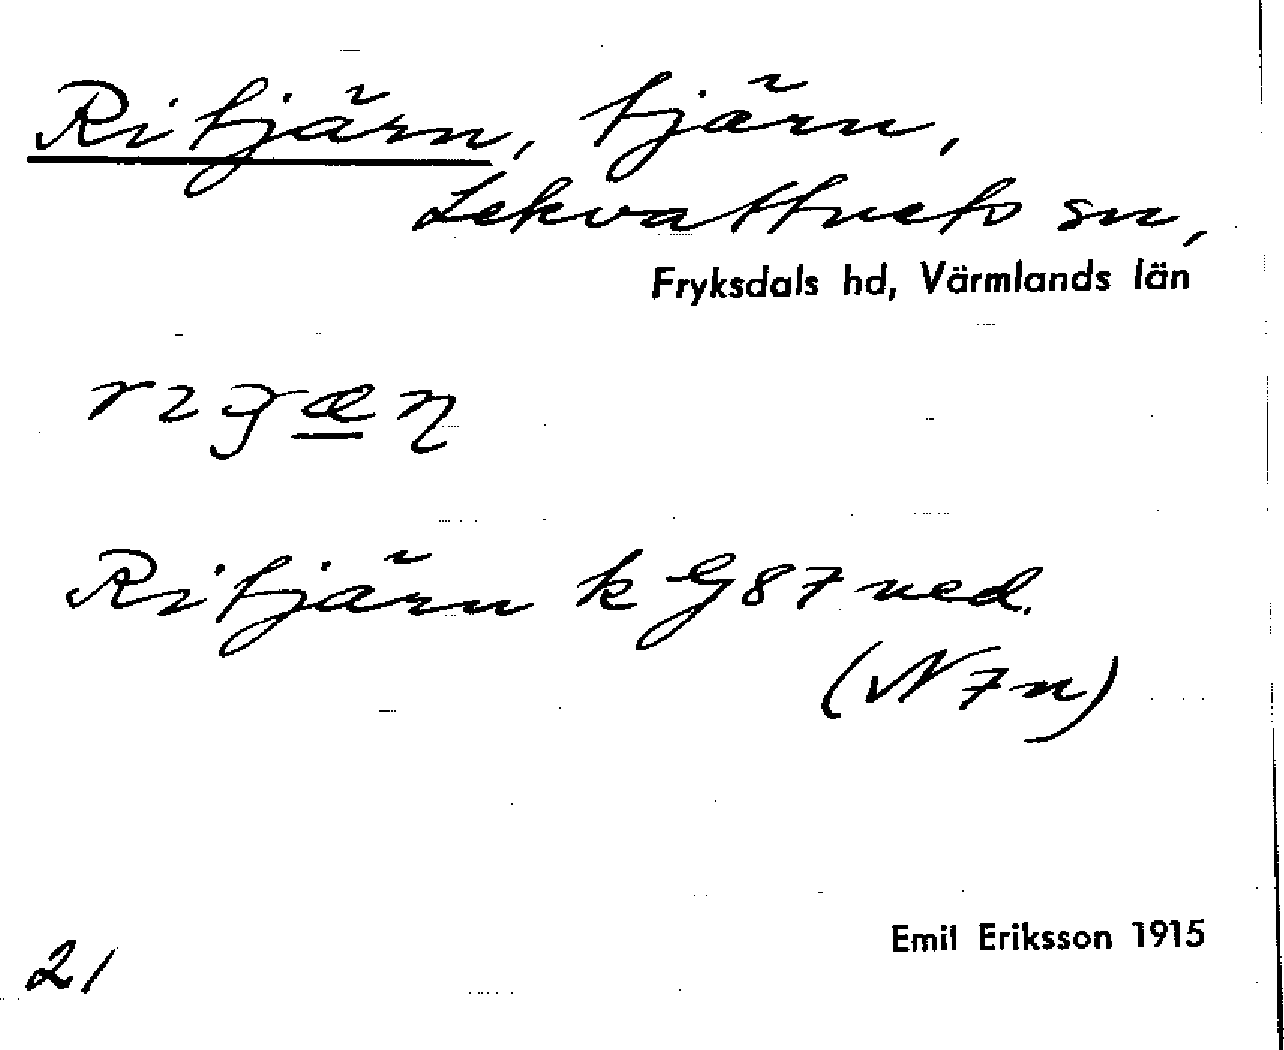 Ritjärn, tjärn,
Lekvattnets sn,
Fryksdals hd, Värmlands län
Ritjärn k G87 ned.
(N7n)
Emil Eriksson 1915
21